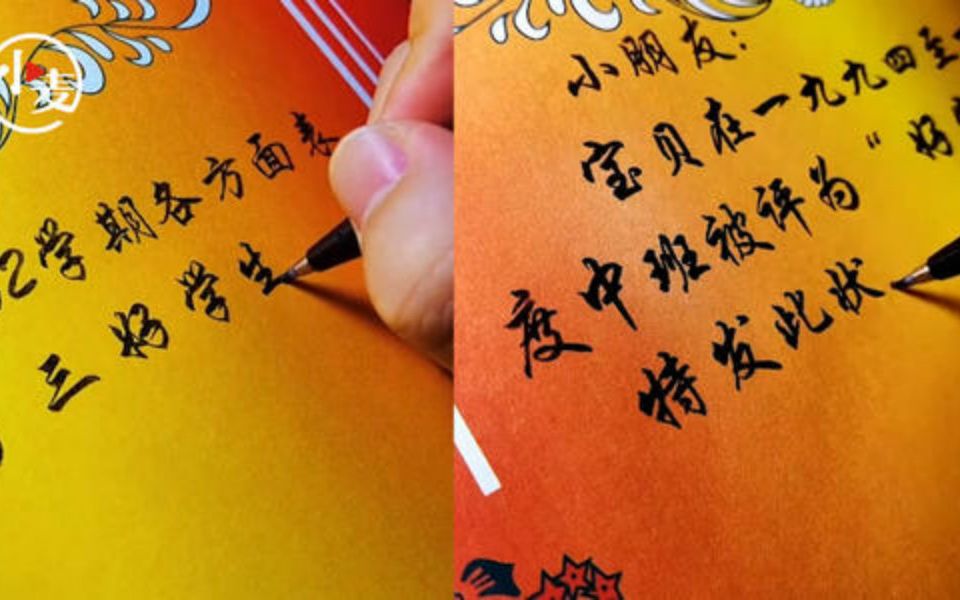 小麦
2学期各方面表
三好学生
小朋友：
宝贝在一九九四至
度中班被评为“好
特发此状